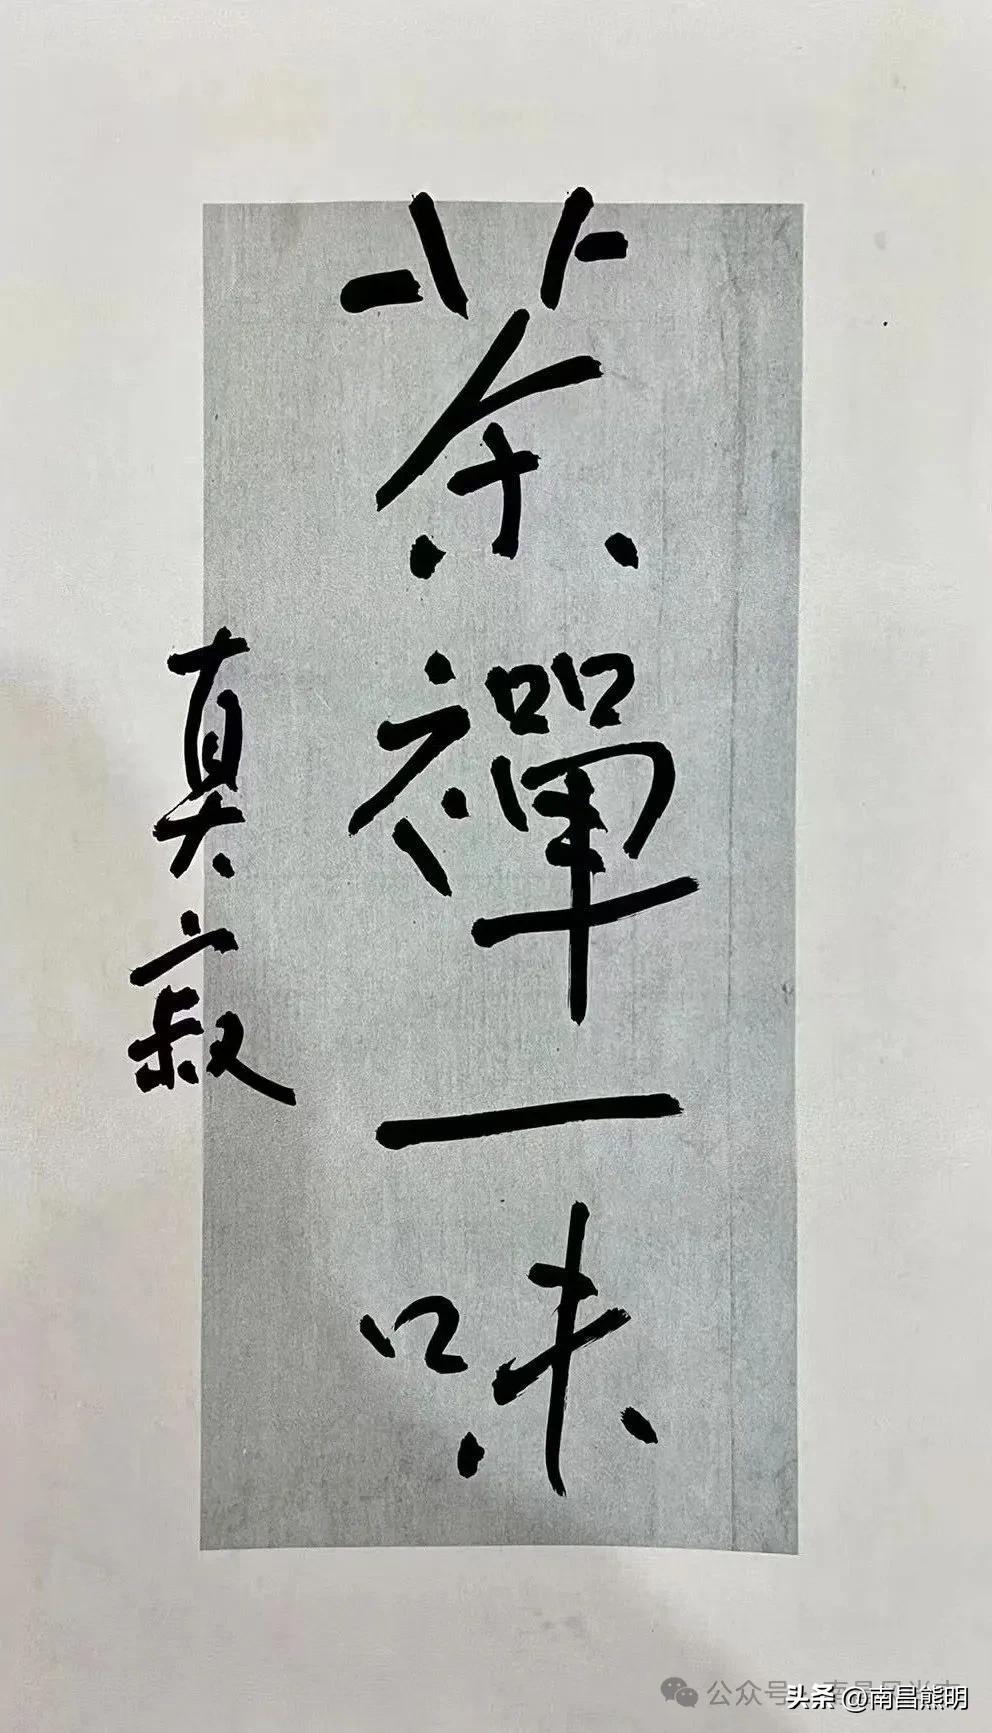 茶禪一味
真寂
公众号
头条 @南昌熊明